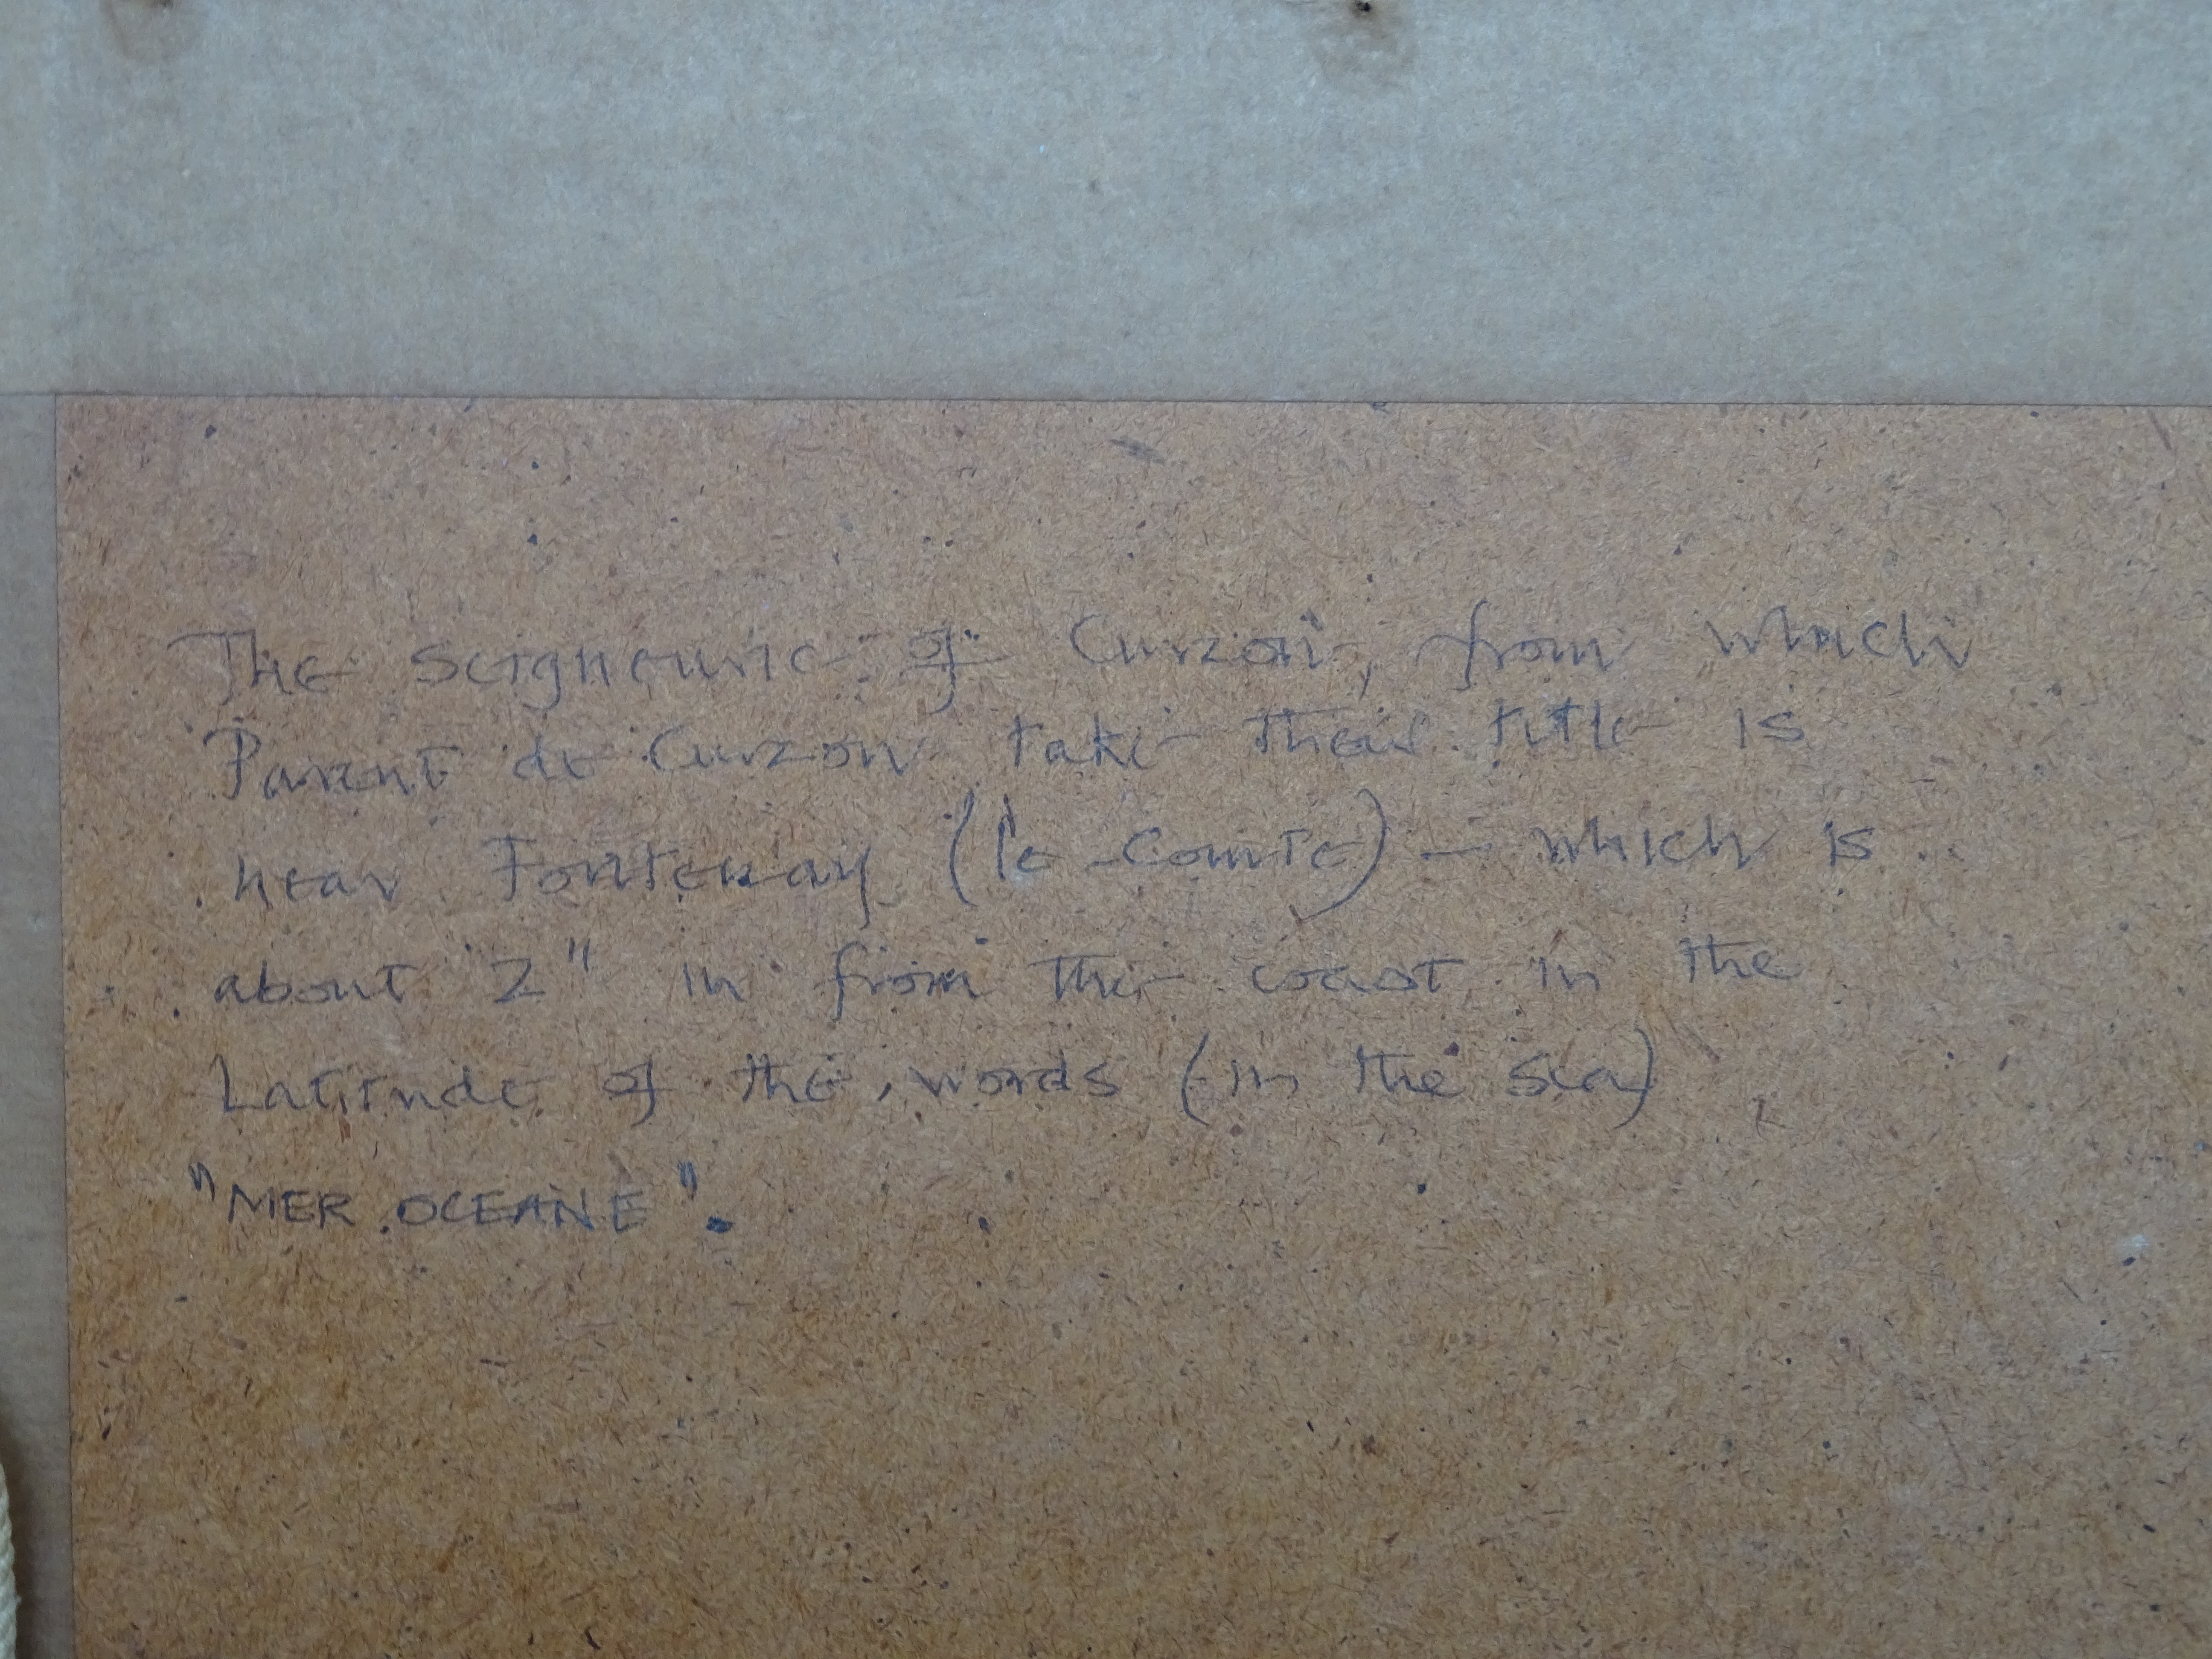 The seigneurie of Curzon, from which
Parent de Curzon take their title is
near Fontenay (le Comte) – which is
about 2" in from the coast, in the
Latitude of the words (in the sea)
"MER OCEANE".